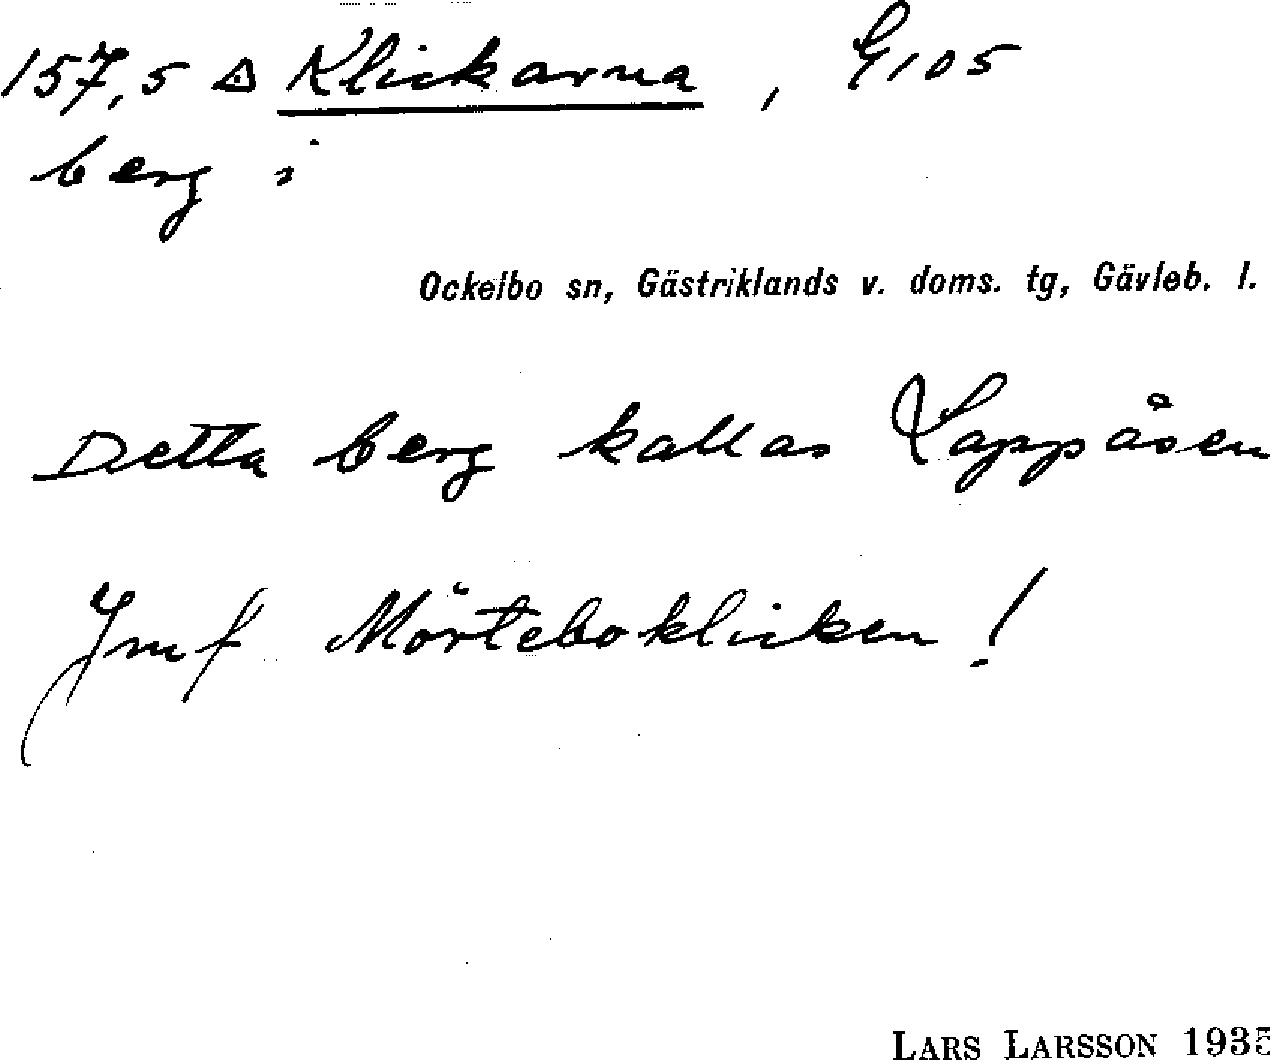 157,5 △ Klickarna , G105
berg i
Ockelbo sn, Gästriklands v. doms. tg, Gävleb. l.
Detta berg kallas Lappåsen
Jmf Mörteboklicken !
LARS LARSSON 1935